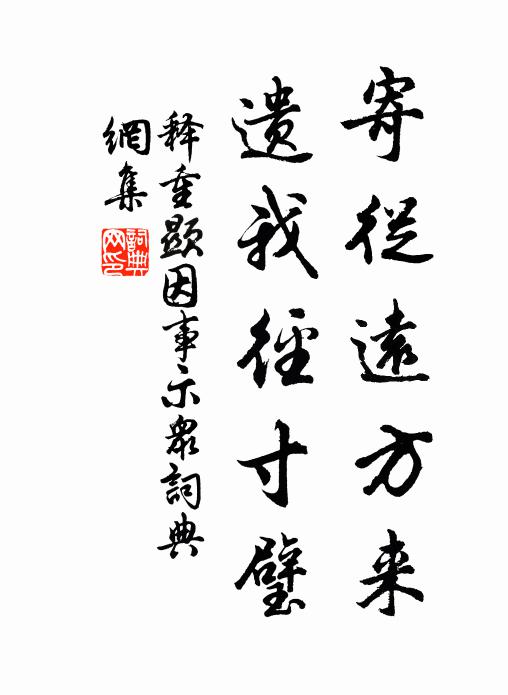 寄從遠方来
遺我徑寸璧
释重顯因事示衆詞典
網集
詞典
网印